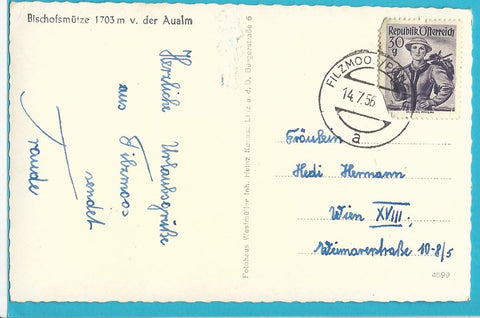 Bischofsmütze 1703 m v. der Aualm
Herzliche Urlaubsgrüße
aus Filzmoos
sendet
Traude
Fotohaus Westmüller Inh. Heinz Kunaus, Linz a. d. D. Bürgerstraße 6
FILZMOOS
14.7.56
a
Republik Österreich
30
g
Fräulein
Hedi Hermann
Wien XVIII.
Weimarerstraße 10-8/5
4699